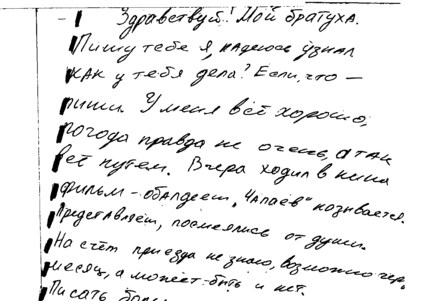 Здравствуй! Мой братуха.
Пишу тебе я, надеюсь узнал
как у тебя дела? Если, что —
пиши. У меня всё хорошо,
погода правда не очень, а так
всё путем. Вчера ходил в кино
фильм – обалдеем, „Чапаев" называется.
Представляеш, посмеялись от души.
На счёт приезда не знаю, возможно чер.
месяц, а может-быть и нет.
Писать